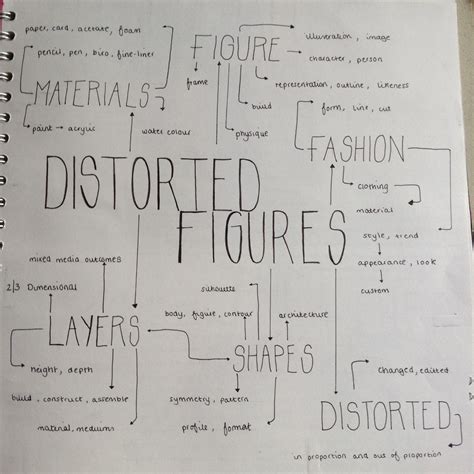 paper, card, acetate, foam
pencil, pen, biro, fine-liner
MATERIALS
paint → acrylic
water colour
FIGURE
illustration, image
character, person
representation, outline, likeness
frame
build
physique
form, line, cut
FASHION
clothing
material
style, trend
appearance, look
custom
DISTORTED
FIGURES
mixed media outcomes
2/3 Dimensional
LAYERS
height, depth
build, construct, assemble
material, mediums
silhouette
body, figure, contour
architecture
SHAPES
symmetry, pattern
profile, format
changed, edited
DISTORTED
in proportion and out of proportion